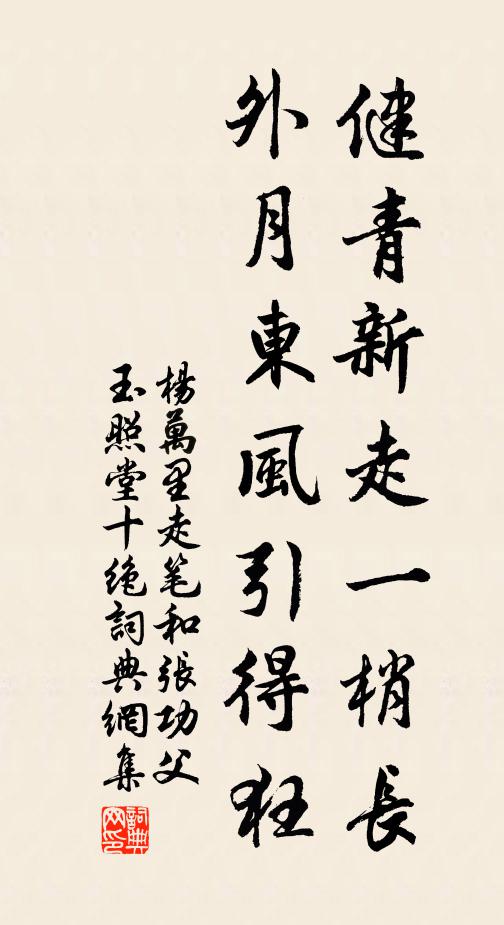 健青新走一梢長
外月東風引得狂
楊萬里走笔和張功父
玉照堂十绝詞典網集
詞典網印